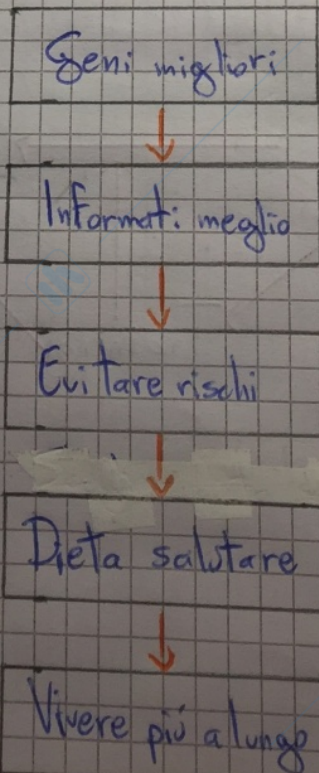 Geni migliori
Informati meglio
Evitare rischi
Dieta salutare
Vivere più a lungo